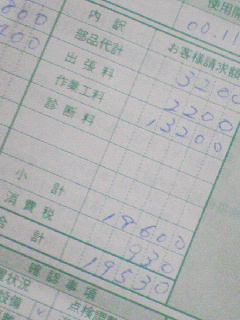 使用開
00.11
内訳 お客様請求額
800
200
部品代計 3200
出張料 2200
作業工料 13200
診断料
小計 18600
消費税 930
合計 19530
確認事項
状況 点検